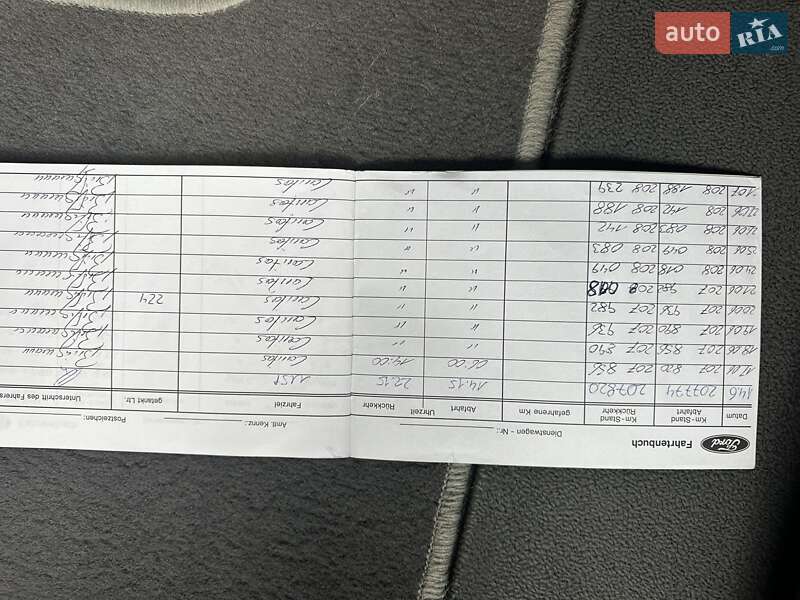 auto RIA .com
Ford Fahrtenbuch Dienstwagen – Nr.: Amtl. Kennz.: Postzeichen:
Datum Km-Stand Abfahrt Km-Stand Rückkehr gefahrene Km Abfahrt Uhrzeit Rückkehr Fahrziel getankt Ltr. Unterschrift des Fahrers
14.6 207774 207820 14.15 22.15
207 820 207 856 06.00 14.00 Caritas
18.06 207 856 207 890 " " Caritas
207 890 207 936 " " Caritas
20.06 207 936 207 982 " " Caritas 224
21.06 207 982 208 018 " " Caritas
208 018 208 049 " " Caritas
25.06 208 049 208 083 " " Caritas
208 083 208 142 " " Caritas
208 142 208 188 " " Caritas
1.07 208 188 208 239 " " Caritas